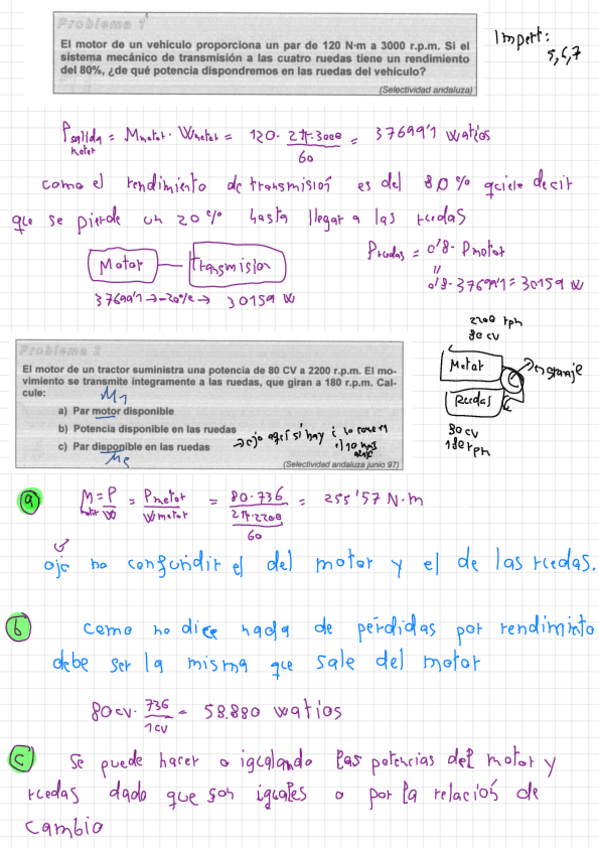 Problema 1
El motor de un vehículo proporciona un par de 120 N·m a 3000 r.p.m. Si el
sistema mecánico de transmisión a las cuatro ruedas tiene un rendimiento
del 80%, ¿de qué potencia dispondremos en las ruedas del vehículo?
(Selectividad andaluza)
Import:
5,6,7
Psalida motor = Mmotor · Wmotor = 120 · 2π·3000/60 = 37699'1 watios
como el rendimiento de transmisión es del 80% quiere decir
que se pierde un 20% hasta llegar a las ruedas
Motor
transmision
37699'1 → -20% → 30159 W
Pruedas = 0'8 · Pmotor
0'8 · 37699'1 = 30159 W
Problema 2
El motor de un tractor suministra una potencia de 80 CV a 2200 r.p.m. El mo-
vimiento se transmite íntegramente a las ruedas, que giran a 180 r.p.m. Cal-
cule:
M1
a) Par motor disponible
b) Potencia disponible en las ruedas
c) Par disponible en las ruedas
M2
→ ojo aquí si hay
(Selectividad andaluza junio 97)
2200 rpm
80 cv
Motor
engranaje
Ruedas
80 cv
180 rpm
a
M motor = P/W = Pmotor/Wmotor = 80·736/(2π·2200/60) = 255'57 N·m
ojo no confundir el del motor y el de las ruedas.
b
como no dice nada de pérdidas por rendimiento
debe ser la misma que sale del motor
80cv · 736/1cv = 58.880 watios
c
se puede hacer o igualando las potencias del motor y
ruedas dado que son iguales o por la relación de
cambio